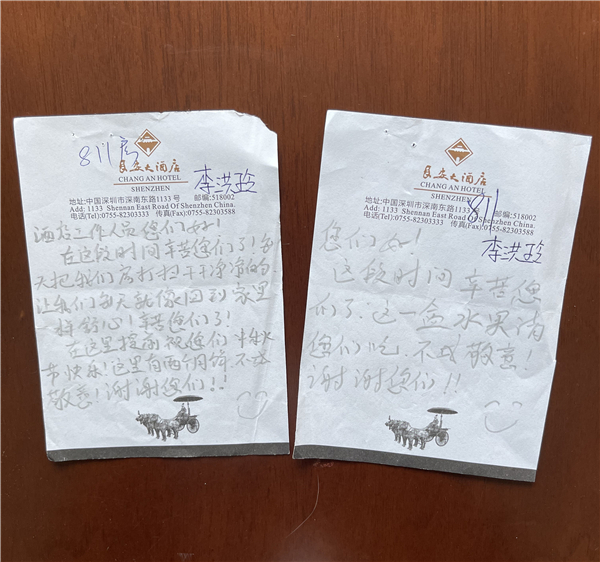 811房
長安大酒店
CHANG AN HOTEL
SHENZHEN
李洪玲
地址:中国深圳市深南东路1133号 邮编:518002
Add: 1133 Shennan East Road Of Shenzhen China.
电话(Tel):0755-82303333 传真(Fax):0755-82303588
酒店工作人员您们好!
在这段时间辛苦您们了!每
天把我们房打扫干干净净的.
让我们每天就像回到家里
一样舒心!辛苦您们了!
在这里提前祝您们中秋
节快乐!这里有两个月饼.不成
敬意!谢谢您们!!
長安大酒店
CHANG AN HOTEL
SHENZHEN
地址:中国深圳市深南东路1133号 邮编:518002
Add: 1133 Shennan East Road Of Shenzhen China.
电话(Tel):0755-82303333 传真(Fax):0755-82303588
811
李洪玲
您们好!
这段时间辛苦您
们了.这一盒水果请
您们吃.不成敬意!
谢谢您们!!